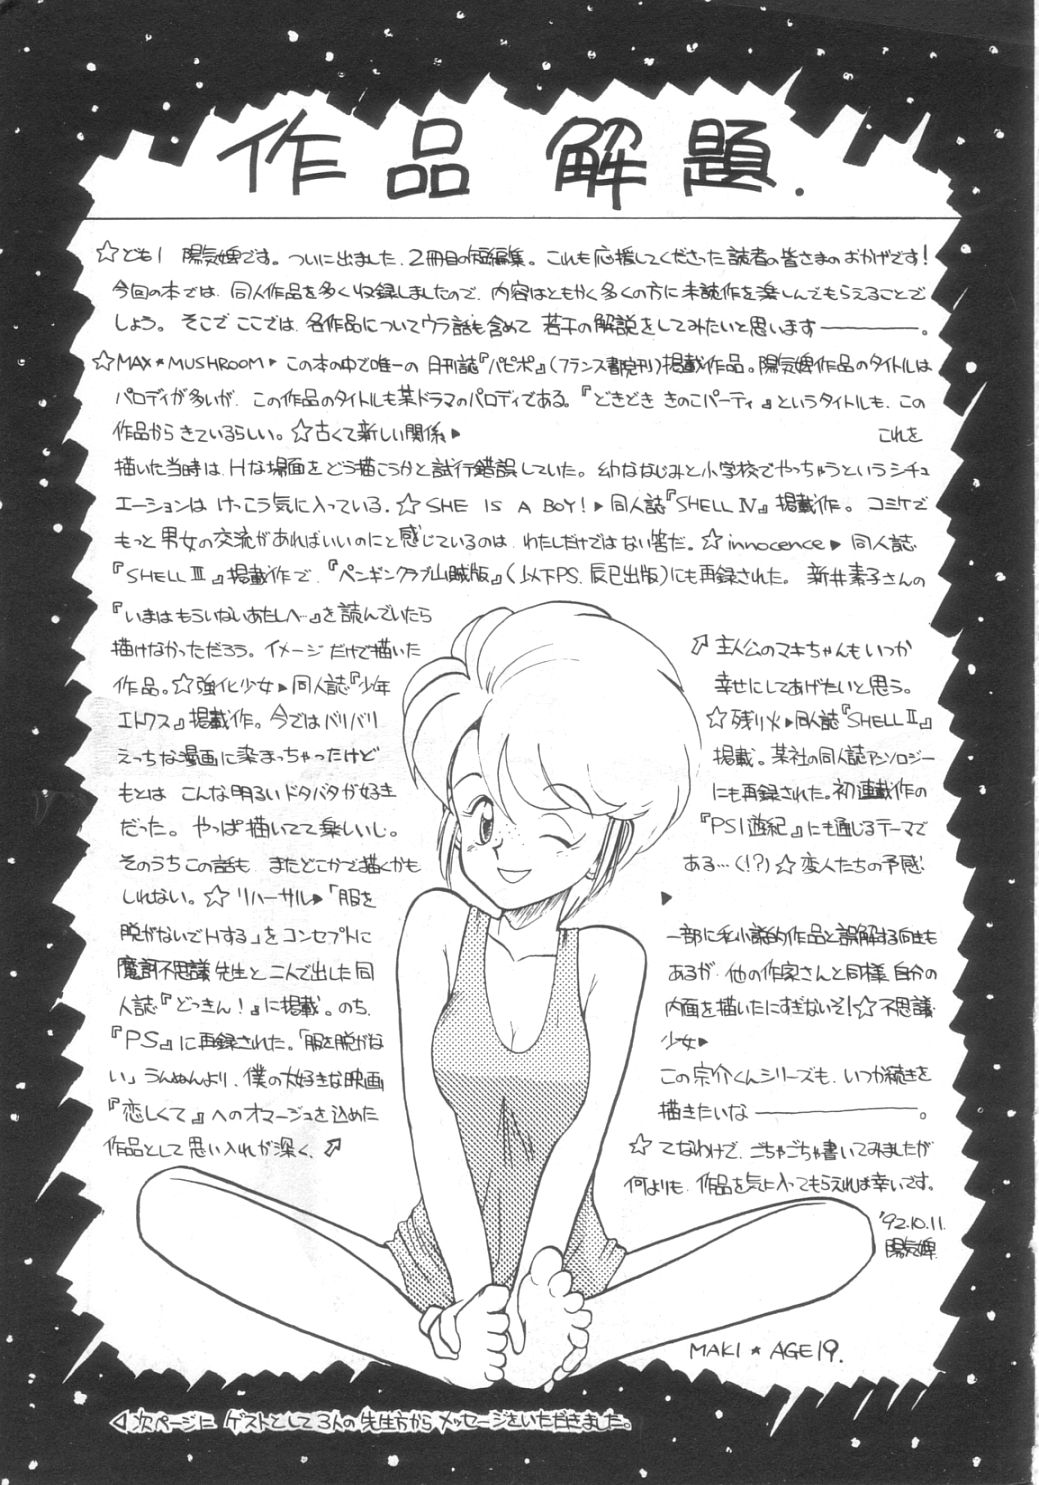 作品解題.
☆ども! 陽気婢です。ついに出ました、2冊目の短編集。これも応援してくださった読者の皆さまのおかげです!
今回の本では、同人作品を多く収録しましたので、内容はともかく多くの方に未読作を楽しんでもらえることで
しょう。そこでここでは、各作品についてウラ話も含めて若干の解説をしてみたいと思います――――。
☆MAX★MUSHROOM▶この本の中で唯一の月刊誌『パピポ』(フランス書院刊)掲載作品。陽気婢作品のタイトルは
パロディが多いが、この作品のタイトルも某ドラマのパロディである。『どきどききのこパーティ』というタイトルも、この
作品からきているらしい。☆古くて新しい関係▶ これを
描いた当時は、Hな場面をどう描こうかと試行錯誤していた。幼ななじみと小学校でやっちゃうというシチュ
エーションはけっこう気に入っている。☆SHE IS A BOY!▶同人誌『SHELL Ⅳ』掲載作。コミケで
もっと男女の交流があればいいのにと感じているのは、わたしだけではない筈だ。☆innocence▶同人誌
『SHELL Ⅲ』掲載作で、『ペンギンクラブ山賊版』(以下PS、辰巳出版)にも再録された。新井素子さんの
『いまはもういないあたしへ…』を読んでいたら
描けなかっただろう。イメージだけで描いた
作品。☆強化少女▶同人誌『少年
エトワス』掲載作。今ではバリバリ
えっちな漫画に染まっちゃったけど
もとはこんな明るいドタバタが好き
だった。やっぱ描いてて楽しいし。
そのうちこの話も、またどこかで描くかも
しれない。☆リハーサル▶「服を
脱がないでHする」をコンセプトに
魔訶不思議先生と二人で出した同
人誌『どっきん!』に掲載。のち、
『PS』に再録された。「服を脱がな
い」うんぬんより、僕の大好きな映画
『恋しくて』へのオマージュを込めた
作品として思い入れが深く、↗
↗主人公のマキちゃんもいつか
幸せにしてあげたいと思う。
☆残り火▶同人誌『SHELL Ⅱ』
掲載。某社の同人誌アンソロジー
にも再録された。初連載作の
『PSI遊紀』にも通じるテーマで
ある…(!?)☆変人たちの予感
▶
一部に私小説的作品と誤解する向きも
あるが、他の作家さんと同様、自分の
内面を描いたにすぎないぞ!☆不思議
少女▶
この宗介くんシリーズも、いつか続きを
描きたいな――――。
☆てなわけで、ごちゃごちゃ書いてみましたが
何よりも、作品を気に入ってもらえれば幸いです。
'92.10.11.
陽気婢
MAKI★AGE19.
◁次ページに ゲストとして3人の先生方からメッセージをいただきました。